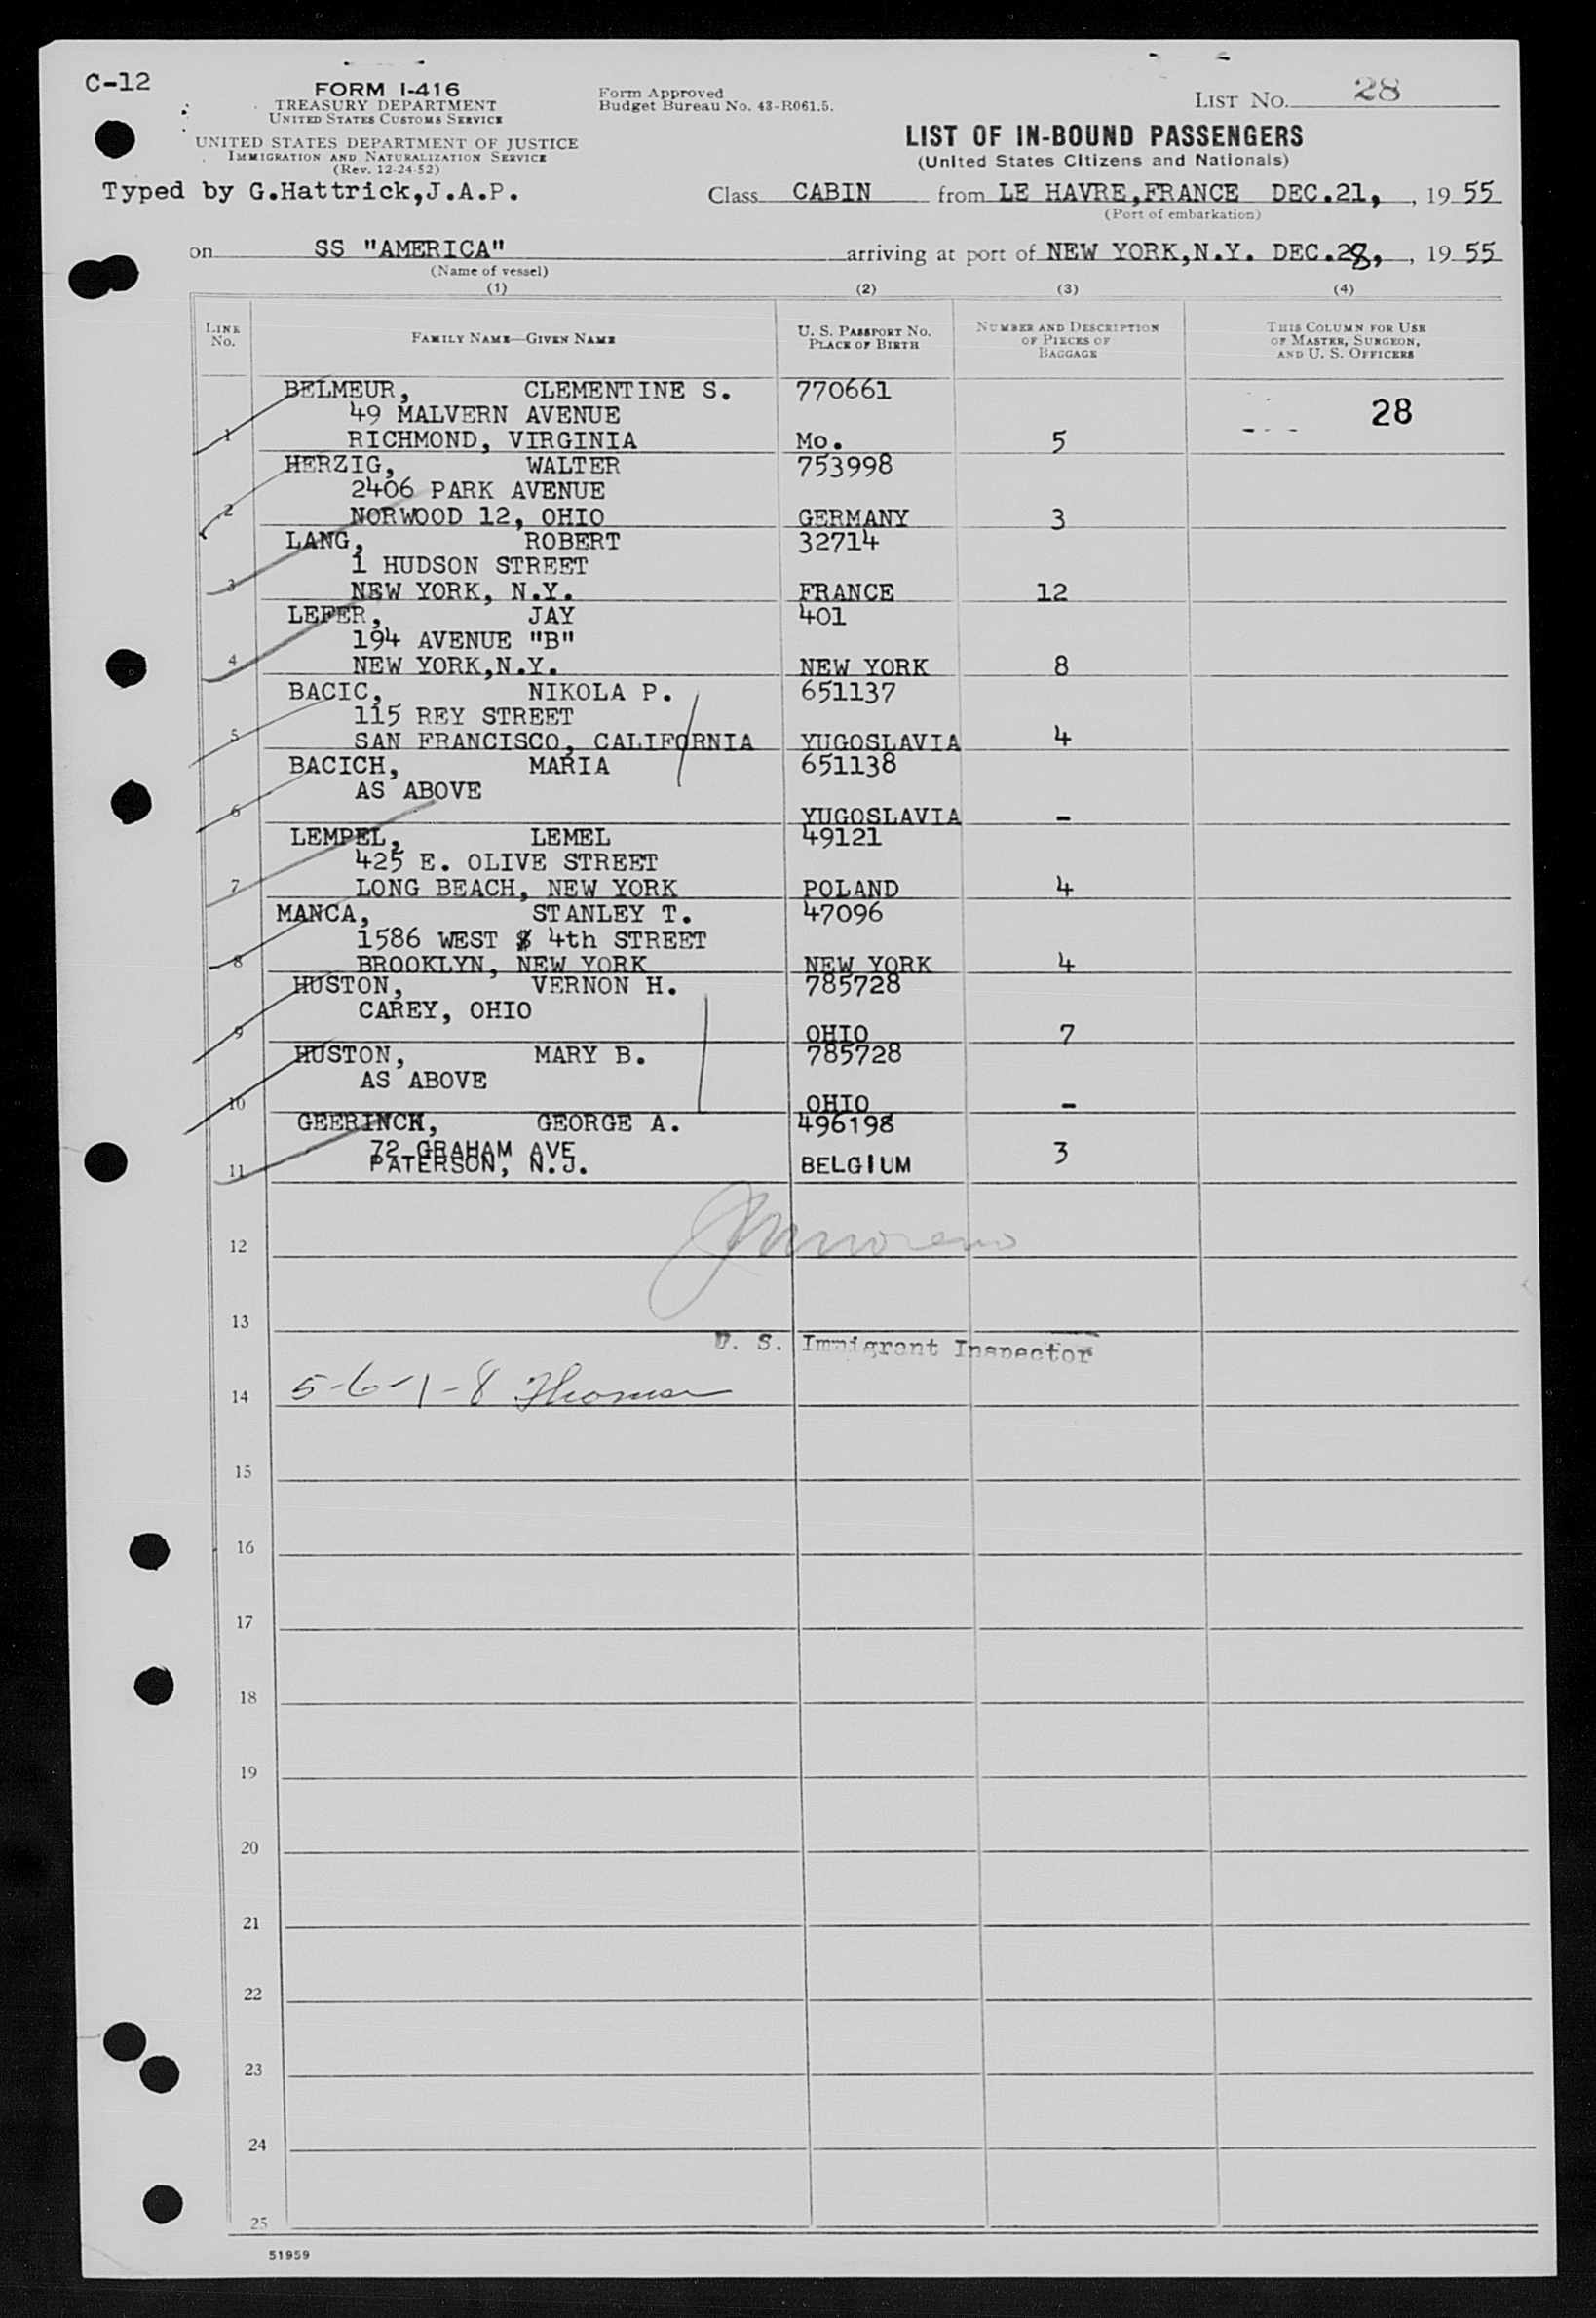 C-12
FORM I-416
TREASURY DEPARTMENT
UNITED STATES CUSTOMS SERVICE
UNITED STATES DEPARTMENT OF JUSTICE
IMMIGRATION AND NATURALIZATION SERVICE
(Rev. 12-24-52)
Typed by G.Hattrick,J.A.P.
Form Approved
Budget Bureau No. 43-R061.5.
LIST NO. 28
LIST OF IN-BOUND PASSENGERS
(United States Citizens and Nationals)
Class CABIN from LE HAVRE,FRANCE DEC.21, , 19 55
(Port of embarkation)
on SS "AMERICA" arriving at port of NEW YORK,N.Y. DEC.28, , 19 55
(Name of vessel)
(1) (2) (3) (4)
LINE NO. FAMILY NAME—GIVEN NAME U. S. PASSPORT NO. PLACE OF BIRTH NUMBER AND DESCRIPTION OF PIECES OF BAGGAGE THIS COLUMN FOR USE OF MASTER, SURGEON, AND U. S. OFFICERS
BELMEUR, CLEMENTINE S. 770661
49 MALVERN AVENUE 28
1 RICHMOND, VIRGINIA Mo. 5
HERZIG, WALTER 753998
2406 PARK AVENUE
2 NORWOOD 12, OHIO GERMANY 3
LANG, ROBERT 32714
1 HUDSON STREET
3 NEW YORK, N.Y. FRANCE 12
LEFER, JAY 401
194 AVENUE "B"
4 NEW YORK,N.Y. NEW YORK 8
BACIC, NIKOLA P. 651137
115 REY STREET
5 SAN FRANCISCO, CALIFORNIA YUGOSLAVIA 4
BACICH, MARIA 651138
AS ABOVE
6 YUGOSLAVIA -
LEMPEL, LEMEL 49121
425 E. OLIVE STREET
7 LONG BEACH, NEW YORK POLAND 4
MANCA, STANLEY T. 47096
1586 WEST 4th STREET
8 BROOKLYN, NEW YORK NEW YORK 4
HUSTON, VERNON H. 785728
CAREY, OHIO
9 OHIO 7
HUSTON, MARY B. 785728
AS ABOVE
10 OHIO -
GEERINCK, GEORGE A. 496198
72 GRAHAM AVE
11 PATERSON, N.J. BELGIUM 3
12
13
U. S. Immigrant Inspector
14 5-6-1-8
15
16
17
18
19
20
21
22
23
24
25
51959